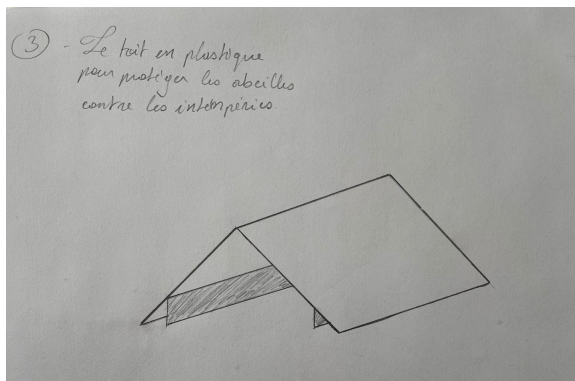 ③ - Le toit en plastique
pour protéger les abeilles
contre les intempéries.